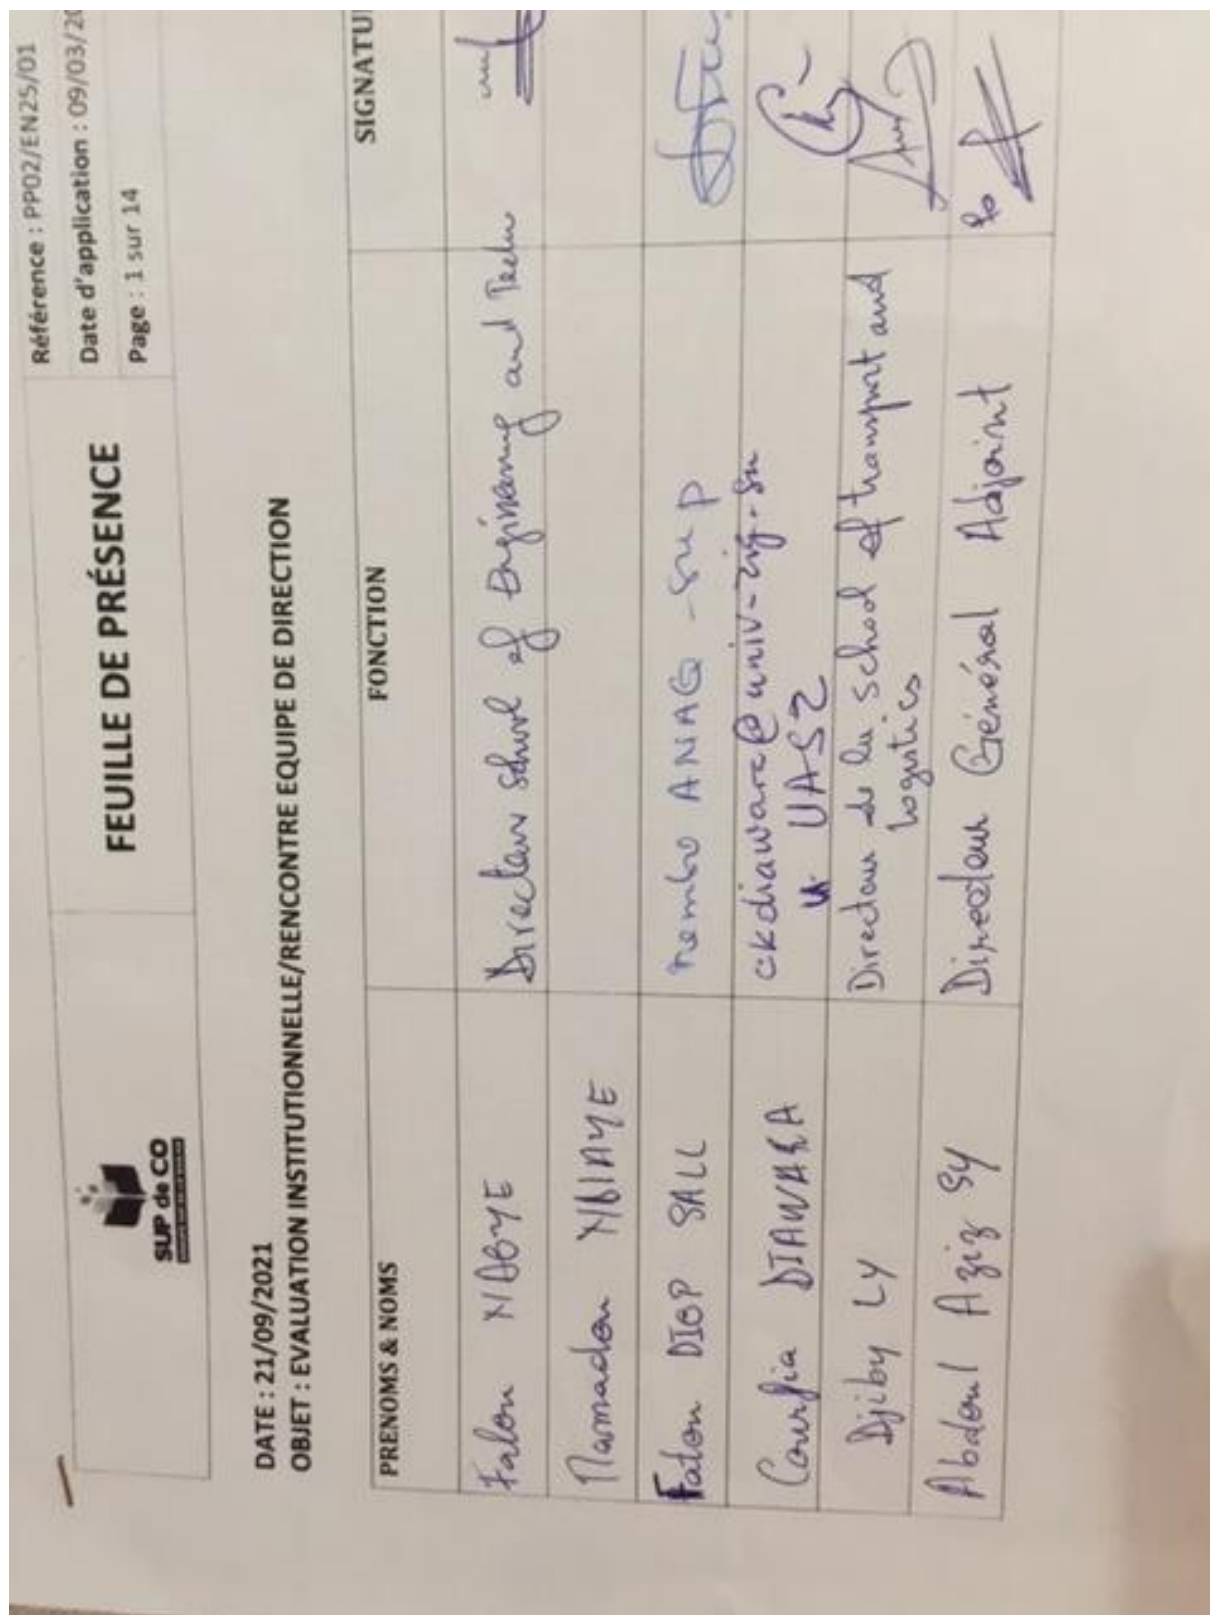 SUP de CO
FEUILLE DE PRÉSENCE
Référence : PP02/EN25/01
Date d'application : 09/03/20
Page : 1 sur 14
DATE : 21/09/2021
OBJET : EVALUATION INSTITUTIONNELLE/RENCONTRE EQUIPE DE DIRECTION
PRENOMS & NOMS FONCTION SIGNATU
Falou Directeur School of Engineering and Techn
Mamadou NDIAYE
Fatou DIOP SALL membre ANAQ-Sup
DIAWARA ckdiawara@univ-zig.sn
UASZ
Djiby LY Directeur de la school of transport and
Logistics
Abdoul Aziz SY Directeur Général Adjoint